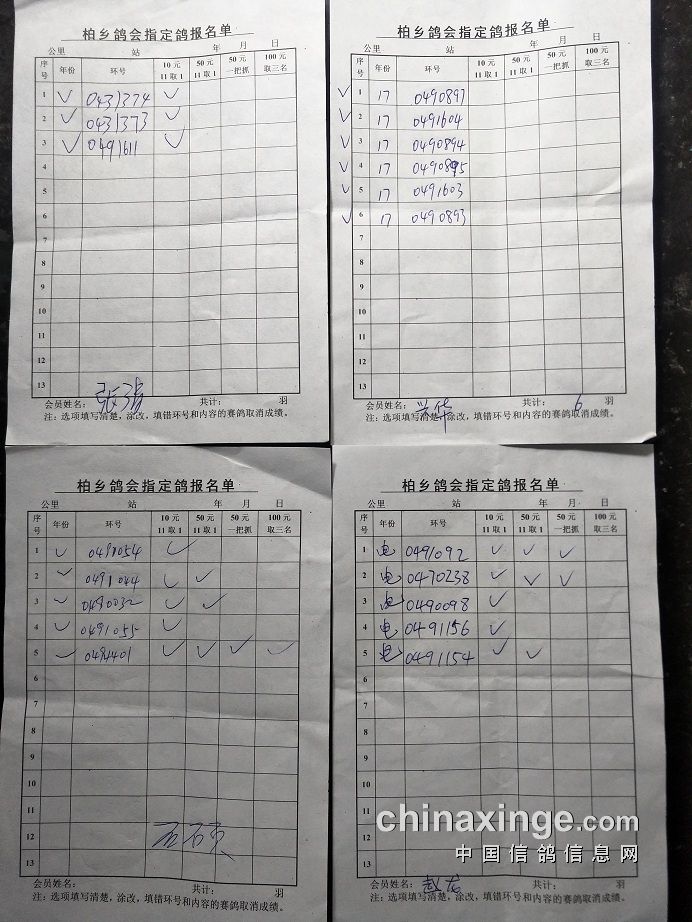 柏乡鸽会指定鸽报名单
公里 站 年 月 日
序号 年份 环号 10元 11取1 50元 11取1 50元 一把抓 100元 取三名
1 ✓ 0431374 ✓
2 ✓ 0431373 ✓
3 ✓ 0491611 ✓
4
5
6
7
8
9
10
11
12
13
会员姓名: 共计: 羽
注:选项填写清楚,涂改,填错环号和内容的赛鸽取消成绩。
柏乡鸽会指定鸽报名单
公里 站 年 月 日
序号 年份 环号 10元 11取1 50元 11取1 50元 一把抓 100元 取三名
✓ 1 17 0490897
✓ 2 17 0491604
✓ 3 17 0490894
✓ 4 17 0490895
✓ 5 17 0491603
✓ 6 17 0490893
7
8
9
10
11
12
13
会员姓名: 兴华 共计: 6 羽
注:选项填写清楚,涂改,填错环号和内容的赛鸽取消成绩。
柏乡鸽会指定鸽报名单
公里 站 年 月 日
序号 年份 环号 10元 11取1 50元 11取1 50元 一把抓 100元 取三名
1 ✓ 0491054 ✓
2 ✓ 0491044 ✓ ✓
3 ✓ 0490032 ✓ ✓
4 ✓ 0491055 ✓
5 ✓ ✓ ✓ ✓ ✓
6
7
8
9
10
11
12
13
会员姓名: 共计: 羽
注:选项填写清楚,涂改,填错环号和内容的赛鸽取消成绩。
柏乡鸽会指定鸽报名单
公里 站 年 月 日
序号 年份 环号 10元 11取1 50元 11取1 50元 一把抓 100元 取三名
1 电 0491092 ✓ ✓ ✓
2 电 0470238 ✓ ✓ ✓
3 电 0490098 ✓
4 电 0491156 ✓
5 电 0491154 ✓ ✓
6
7
8
9
10
11
12
13
会员姓名: 共计: 羽
注:选项填写清楚,涂改,填错环号和内容的赛鸽取消成绩。
chinaxinge.com
中国信鸽信息网